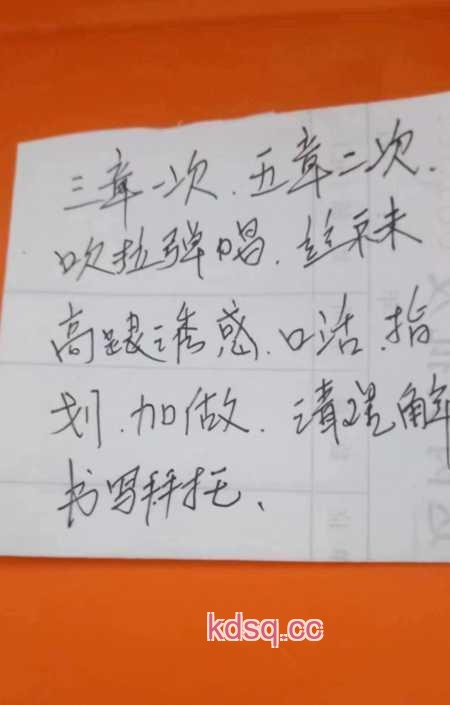 三章一次、五章二次、
吹拉弹唱、丝袜
高跟诱惑、口活、指
划、加做、请理解
书写拜托、
kdsq.cc